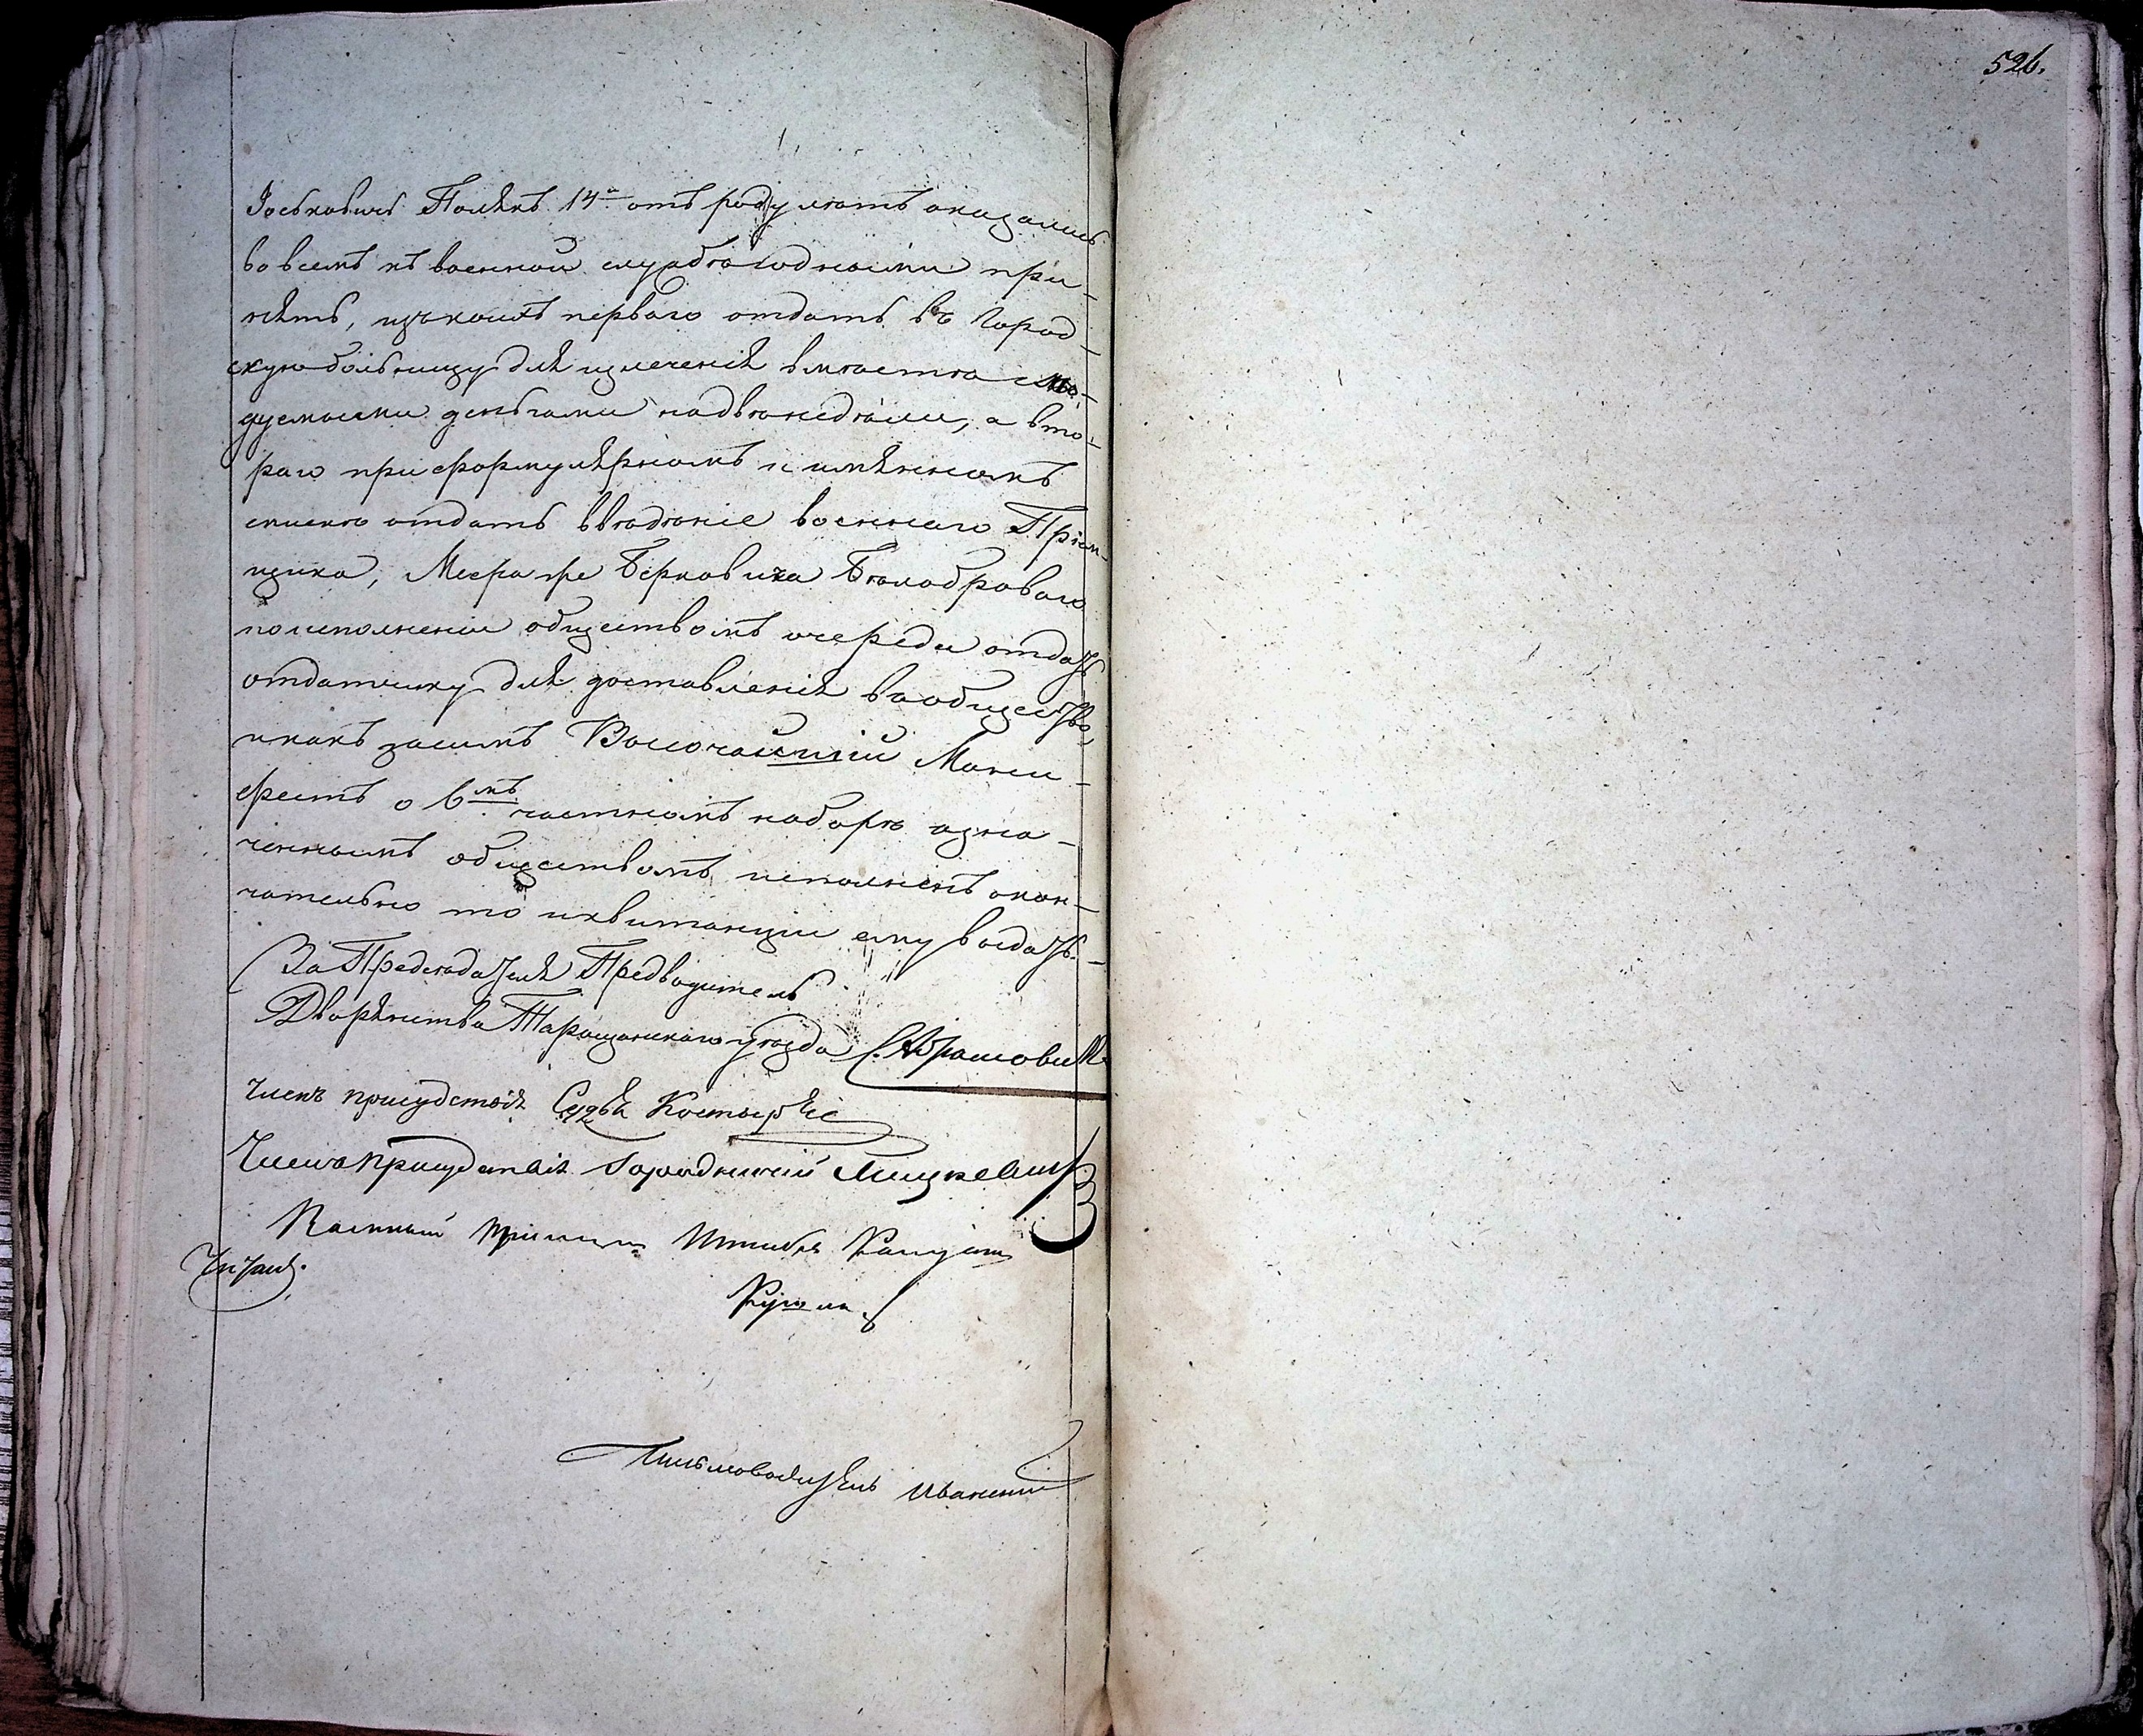 526.
Іоськовичь Полякъ 14<sup>ти</sup> отъ роду лѣтъ оказались
во всемъ къ военной службѣ годными при-
нять, изъ коихъ первого отдать въ Город-
скую больницу для излеченія вмѣстѣ с
дуемыми деньгами надвѣ недѣли, а вто-
раго при формулярномъ и имянномъ
спискѣ отдатьввѣденіе военного Пріем-
щика, Берковича Бѣлоброваго
по исполненіи обществомъ очереди отдать
отдатчику для доставленія вобщество,
и какъ засимъ Высочайшій Мани-
фестъ о 6<sup>мъ</sup> частномъ наборѣ озна-
ченнымъ обществомъ исполненъ окон-
чательно то и квитанціи ему выдать.
За Предсѣдателя Предводитель
Дворянства Таращанского уѣзда
членъ присудствія Судья
Членъ присудствія Городничий
Военный
Читалъ
Письмоводитель